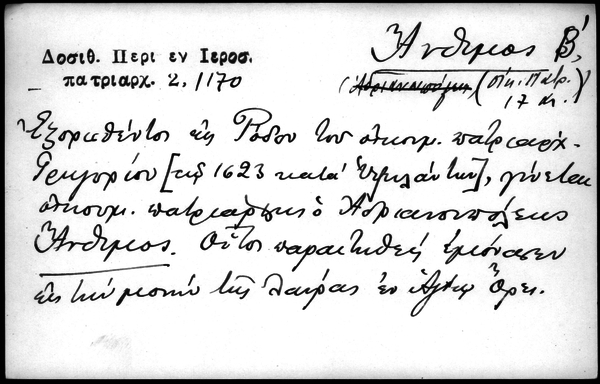 Ἄνθιμος Β΄,
Δοσιθ. Περι εν Ιεροσ.
πατριαρχ. 2, 1170
(Ἀδριανουπόλεως, (Οἰκ. Πατρ.)
17 αἰ.)
Ἐξορισθέντος εἰς Ρόδον τοῦ οἰκουμ. πατριαρχ.
Γρηγορίου [τῷ 1623 κατὰ], γίνεται
οἰκουμ. πατριάρχης ὁ Ἀδριανουπόλεως
Ἄνθιμος. Οὗτος παραιτηθεὶς ἐμόνασεν
εἰς τὴν μονὴν τῆς Λαύρας ἐν Ἁγίῳ Ὄρει.